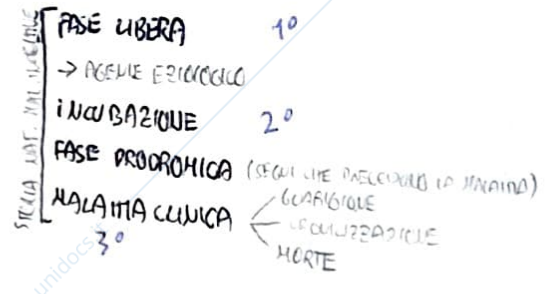 STORIA NAT. MAL. INFETTIVE
FASE LIBERA 1°
→ AGENTE EZIOLOGICO
INCUBAZIONE 2°
FASE PRODROMICA (SEGNI CHE PRECEDONO LA MALATTIA)
MALATTIA CLINICA
GUARIGIONE
CRONICIZZAZIONE
MORTE
3°
unidocs.it